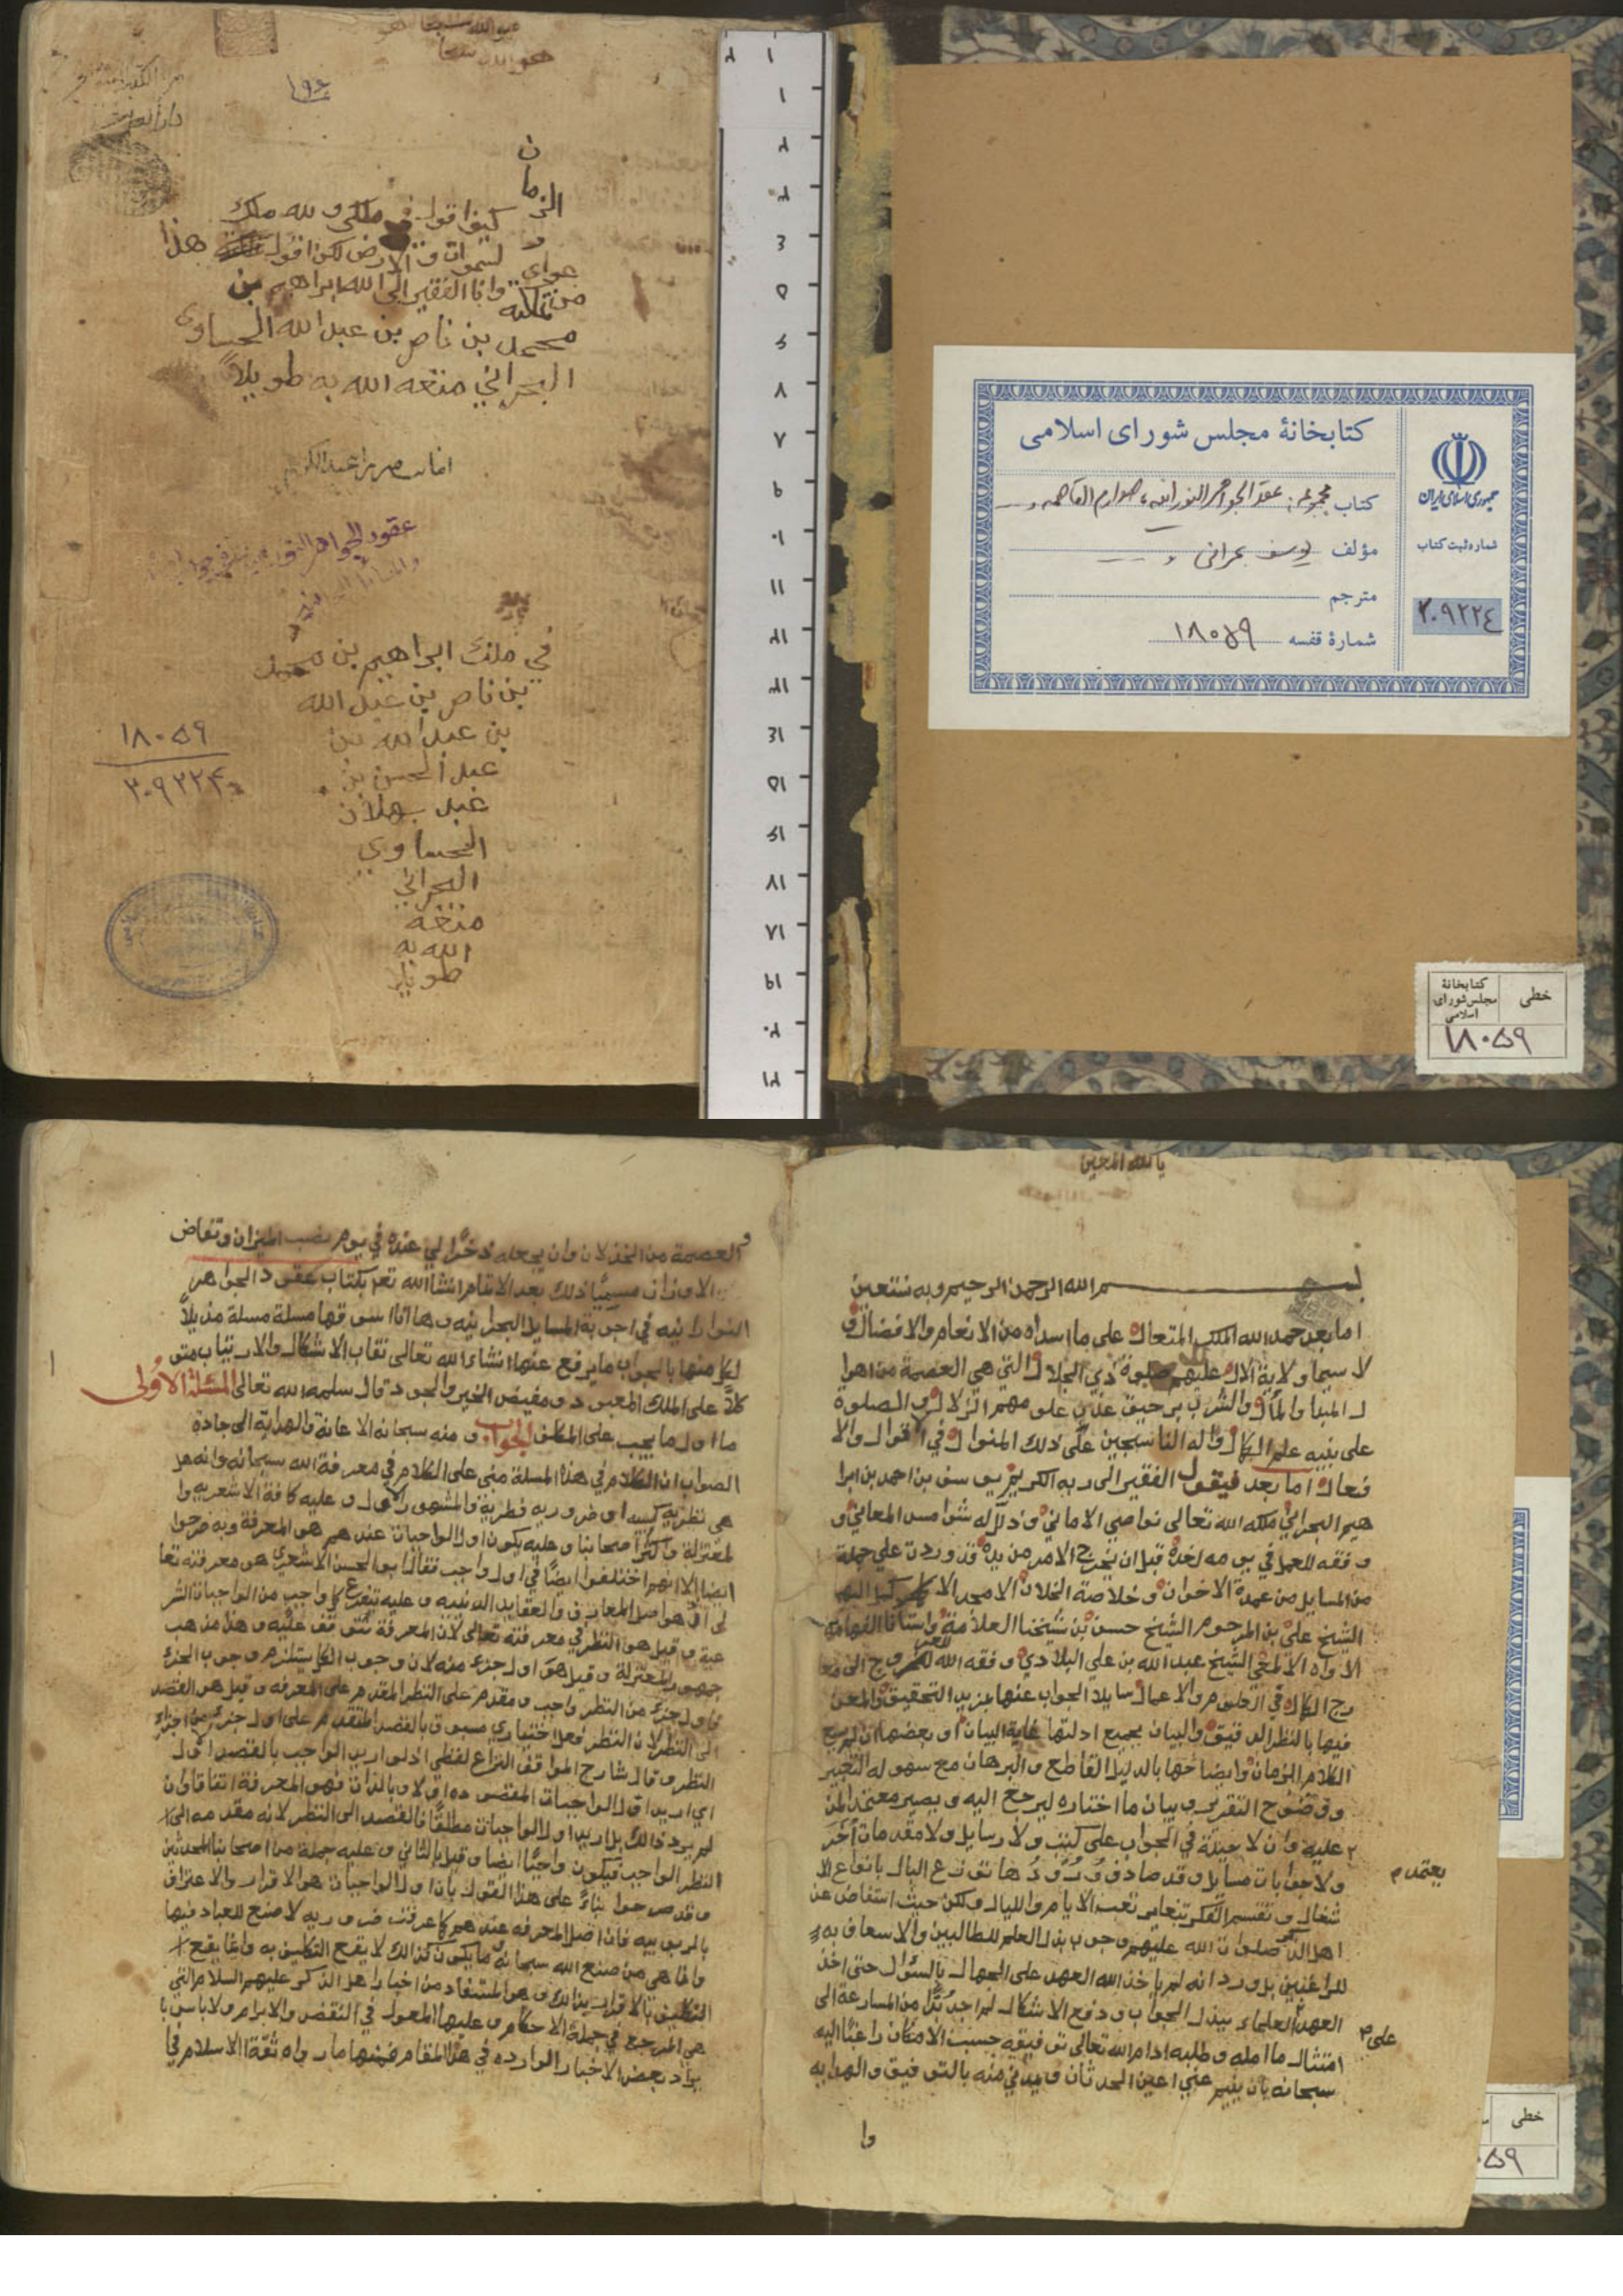 هو الله سبحانه
۱۹۶
الزمان
كيف اقول في ملكي و لله ملك
السموات و الارض لكن اقول هذا
من عواري
وانا الفقير الى الله ابراهيم بن
محمد بن ناصر بن عبدالله الحساوي
البحراني متعه الله به طويلاً
عقود الجواهر النورانية في
في ملك ابراهيم بن محمد
بن ناصر بن عبد الله
بن عبدالله بن
عبد الحسن بن
عبد بهلان
الحساوي
البحراني
متعه
الله به
طويلا
۱۸۰۵۹
۳۰۹۲۲۴
کتابخانهٔ مجلس شورای اسلامی
کتاب مجموعه: عقد الجواهر النورانیه، صوارم القاصمه و
مؤلف یوسف بحرانی و
مترجم
شمارهٔ قفسه ۱۸۰۵۹
جمهوری اسلامی ایران
شماره ثبت کتاب
۳۰۹۲۲۴
خطی
کتابخانهٔ
مجلس شورای
اسلامی
۱۸۰۵۹
يا الله المعين
بسم الله الرحمن الرحيم وبه نستعين
اما بعد حمد الله الملك المتعال على ما اسداه من الانعام والافضال و
لا سيما ولاية الال عليهم صلوة ذي الجلال التي هي العصمة من اهوا
ل المبدا والمآل والشرب برحيق عذب على مهم الزلال والصلوة
على نبيه علم الكمال واله الناسجين على ذلك المنوال في الاقوال والا
فعال اما بعد فيقول الفقير الى ربه الكريم يوسف بن احمد بن ابرا
هيم البحراني ملكه الله تعالى نواصي الاماني وذلل له شوامس المعاني و
وفقه للعمل في يومه لغده قبل ان يخرج الامر من يده قد وردت علي جملة
من المسايل من عمدة الاخوان وخلاصة الخلان الامجد الا
الشيخ علي بن المرحوم الشيخ حسن بن شيخنا العلامة واستاذنا الفهامة
الاواه الالمعي الشيخ عبد الله بن علي البلادي وفقه الله للعروج الى معا
رج الكمال في العلوم والاعمال سايلا الجواب عنها بمزيد التحقيق والمعن
فيها بالنظر الدقيق والبيان بجميع ادلتها غاية البيان او بعضها ان لم يسع
الكلام الزمان وايضاحها بالدليل القاطع والبرهان مع سهولة التعبير
ووضوح التقرير وبيان ما اختاره ليرجع اليه ويصير معتمد المن
يعتمد م
عليه وان لا حيلة في الجواب على كتب ولا رسايل ولا مقدمات اخر
ولا جوابات مسايل وقد صادف ورودها توزع البال بانواع الا
شغال وتقسيم الفكر بتعاير تعب الايام والليال ولكن حيث استفاض عن
اهل الذكر صلوات الله عليهم وجوب بذل العلم للطالبين والاسعاف به
للراغبين بل ورد انه لم ياخذ الله العهد على الجهال بالسؤال حتى اخذ
على م
العهد العلماء ببذل الجواب ودفع الاشكال لم اجد بدًا من المسارعة الى
امتثال ما امله وطلبه ادام الله تعالى توفيقه حسب الامكان راغبًا اليه
سبحانه بان ينيم عني اعين الحدثان ويمدني منه بالتوفيق والهدايه
وا
والعصمة من الخذلان وان يجعله ذخرًا لي عنده في يوم نصب الميزان وتفاض
الاوزان مسميًا ذلك بعد الاتمام انشا الله تعالى بكتاب عقود الجواهر
النورانيه في اجوبة المسايل البحرانيه وها انا اسوقها مسلة مسلة مذيلاً
لكل منها بالجواب ما يرفع عنها انشاء الله تعالى نقاب الاشكال والارتياب متو
كلاً على الملك المعبود ومفيض الخير والجود قال سلمه الله تعالى المسئلة الاولى
ما اول ما يجب على المكلف الجواب ومنه سبحانه الاعانة والهداية الى جادة
الصواب ان الكلام في هذه المسلة مبني على الكلام في معرفة الله سبحانه وانه هل
هي نظرية كسبيه او ضروريه فطرية والمشهور الاول وعليه كافة الاشعريه وا
لمعتزلة واكثر اصحابنا وعليه يكون اول الواجبات عندهم هو المعرفة وبه صرحوا
ايضا الا انهم اختلفوا ايضًا في اول واجب فقال ابو الحسن الاشعري هو معرفته تعا
لى اذ هو اصل المعارف والعقايد الدينيه وعليه يتفرع كل واجب من الواجبات الشر
عية وقيل هو النظر في معرفته تعالى لان المعرفة تتوقف عليه وهذا مذهب
جمهور المعتزلة وقيل هو اول جزء منه لان وجوب الكل يستلزم وجوب الجزء
فاول جزء من النظر واجب ومقدم على النظر المقدم على المعرفه وقيل هو القصد
الى النظر لان النظر فعل اختياري مسبوق بالقصد المتقدم على اول جزء من اجزاء
النظر وقال شارح المواقف النزاع لفظي اذ لو اريد الواجب بالقصد الاول
اي اريد اول الواجبات المقصوده اولا وبالذات فهو المعرفة اتفاقا وان
لم يرد ذلك بل اريد اول الواجبات مطلقًا فالقصد الى النظر لانه مقدمه الى
النظر الواجب فيكون واجبًا ايضا وقيل بالثاني وعليه جملة من اصحابنا المحدثين
وقد صرحوا بناءً على هذا القول بان اول الواجبات هو الاقرار والاعتراف
بالربوبيه فان اصل المعرفه عندهم كما عرفت ضروريه لا صنع للعباد فيها
وانما هي من صنع الله سبحانه وما يكون كذلك لا يقع التكليف به وانما يقع
التكليف بالاقرار بذلك وهو المستفاد من اخبار اهل الذكر عليهم السلام التي
هي المرجع في جملة الاحكام وعليها المعول في النقض والابرام ولا باس با
يراد بعض الاخبار الوارده في هذا المقام فمنها ما رواه ثقة الاسلام في
خطی